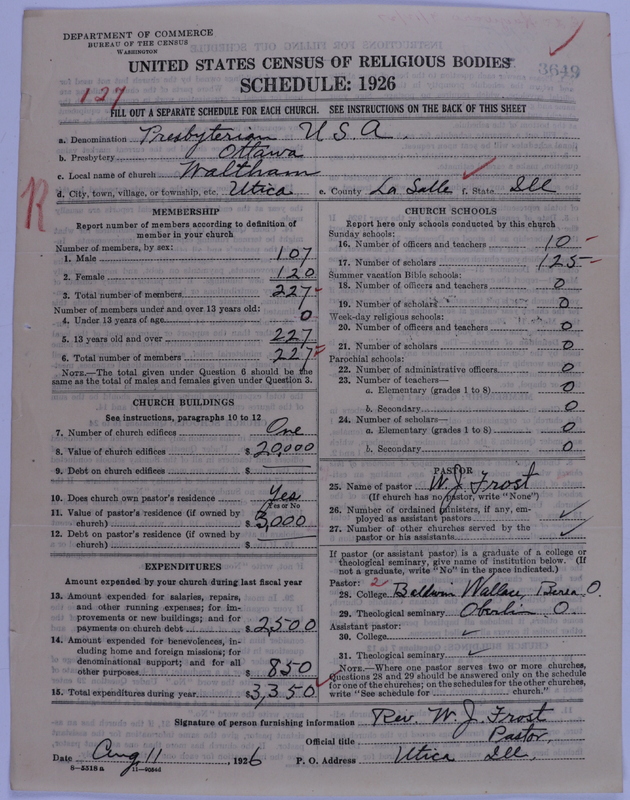 DEPARTMENT OF COMMERCE
BUREAU OF THE CENSUS
WASHINGTON
UNITED STATES CENSUS OF RELIGIOUS BODIES
3649
SCHEDULE: 1926
127
FILL OUT A SEPARATE SCHEDULE FOR EACH CHURCH. SEE INSTRUCTIONS ON THE BACK OF THIS SHEET
a. Denomination Presbyterian U S A.
b. Presbytery Ottawa
c. Local name of church Waltham
d. City, town, village, or township, etc. Utica e. County La Salle f. State Ill
R
MEMBERSHIP
Report number of members according to definition of
member in your church
Number of members, by sex:
1. Male 107
2. Female 120
3. Total number of members 227
Number of members under and over 13 years old:
4. Under 13 years of age 0
5. 13 years old and over 227
6. Total number of members 227
NOTE.—The total given under Question 6 should be the
same as the total of males and females given under Question 3.
CHURCH BUILDINGS
See instructions, paragraphs 10 to 12
7. Number of church edifices One
8. Value of church edifices $ 20,000
9. Debt on church edifices $
10. Does church own pastor's residence Yes
Yes or No
11. Value of pastor's residence (if owned by
church) $ 3,000
12. Debt on pastor's residence (if owned by
church) $
EXPENDITURES
Amount expended by your church during last fiscal year
13. Amount expended for salaries, repairs,
and other running expenses; for im-
provements or new buildings; and for
payments on church debt $ 2,500
14. Amount expended for benevolences, in-
cluding home and foreign missions; for
denominational support; and for all
other purposes $ 850
15. Total expenditures during year $ 3,350
CHURCH SCHOOLS
Report here only schools conducted by this church
Sunday schools:
16. Number of officers and teachers 10
17. Number of scholars 125
Summer vacation Bible schools:
18. Number of officers and teachers 0
19. Number of scholars 0
Week-day religious schools:
20. Number of officers and teachers 0
21. Number of scholars 0
Parochial schools:
22. Number of administrative officers 0
23. Number of teachers—
a. Elementary (grades 1 to 8) 0
b. Secondary 0
24. Number of scholars—
a. Elementary (grades 1 to 8) 0
b. Secondary 0
PASTOR
25. Name of pastor W. J. Frost
(If church has no pastor, write "None")
26. Number of ordained ministers, if any, em-
ployed as assistant pastors
27. Number of other churches served by the
pastor or his assistants
If pastor (or assistant pastor) is a graduate of a college or
theological seminary, give name of institution below. (If
not a graduate, write "No" in the space indicated.)
Pastor: 2
28. College Baldwin Wallace, Berea O.
29. Theological seminary Oberlin O.
Assistant pastor:
30. College
31. Theological seminary
NOTE.—Where one pastor serves two or more churches,
Questions 28 and 29 should be answered only on the schedule
for one of the churches; on the schedules for the other churches,
write "See schedule for church."
Signature of person furnishing information Rev. W. J. Frost
Official title Pastor,
Date Aug 11, 1926 P. O. Address Utica Ill.
8-5518a 11-9056d